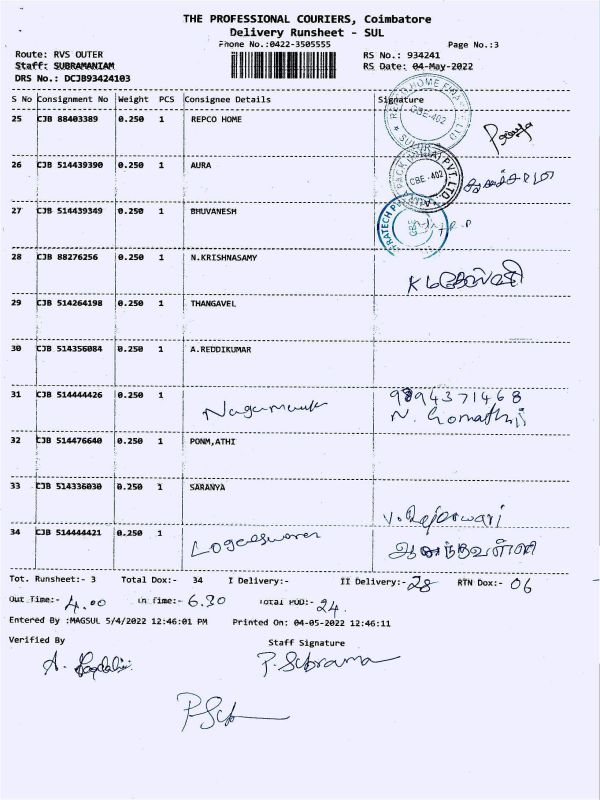 THE PROFESSIONAL COURIERS, Coimbatore
Delivery Runsheet - SUL
Phone No.:0422-3505555
Page No.:3
Route: RVS OUTER
RS No.: 934241
Staff: SUBRAMANIAM
RS Date: 04-May-2022
DRS No.: DCJB93424103
S No Consignment No Weight PCS Consignee Details Signature
25 CJB 88403389 0.250 1 REPCO HOME
CBE-402
26 CJB 514439390 0.250 1 AURA
CBE-402
27 CJB 514439349 0.250 1 BHUVANESH
28 CJB 88276256 0.250 1 N.KRISHNASAMY
29 CJB 514264198 0.250 1 THANGAVEL
30 CJB 514356084 0.250 1 A.REDDIKUMAR
31 CJB 514444426 0.250 1 9894371468
N. Gomathi
32 CJB 514476640 0.250 1 PONM,ATHI
33 CJB 514336030 0.250 1 SARANYA
V. Rajeswari
34 CJB 514444421 0.250 1 Logeeswaran
Tot. Runsheet:- 3 Total Dox:- 34 I Delivery:- II Delivery:- 28 RTN Dox:- 06
Out Time:- 4.00 In Time:- 6.30 Total POD:- 24.
Entered By :MAGSUL 5/4/2022 12:46:01 PM Printed On: 04-05-2022 12:46:11
Verified By
Staff Signature